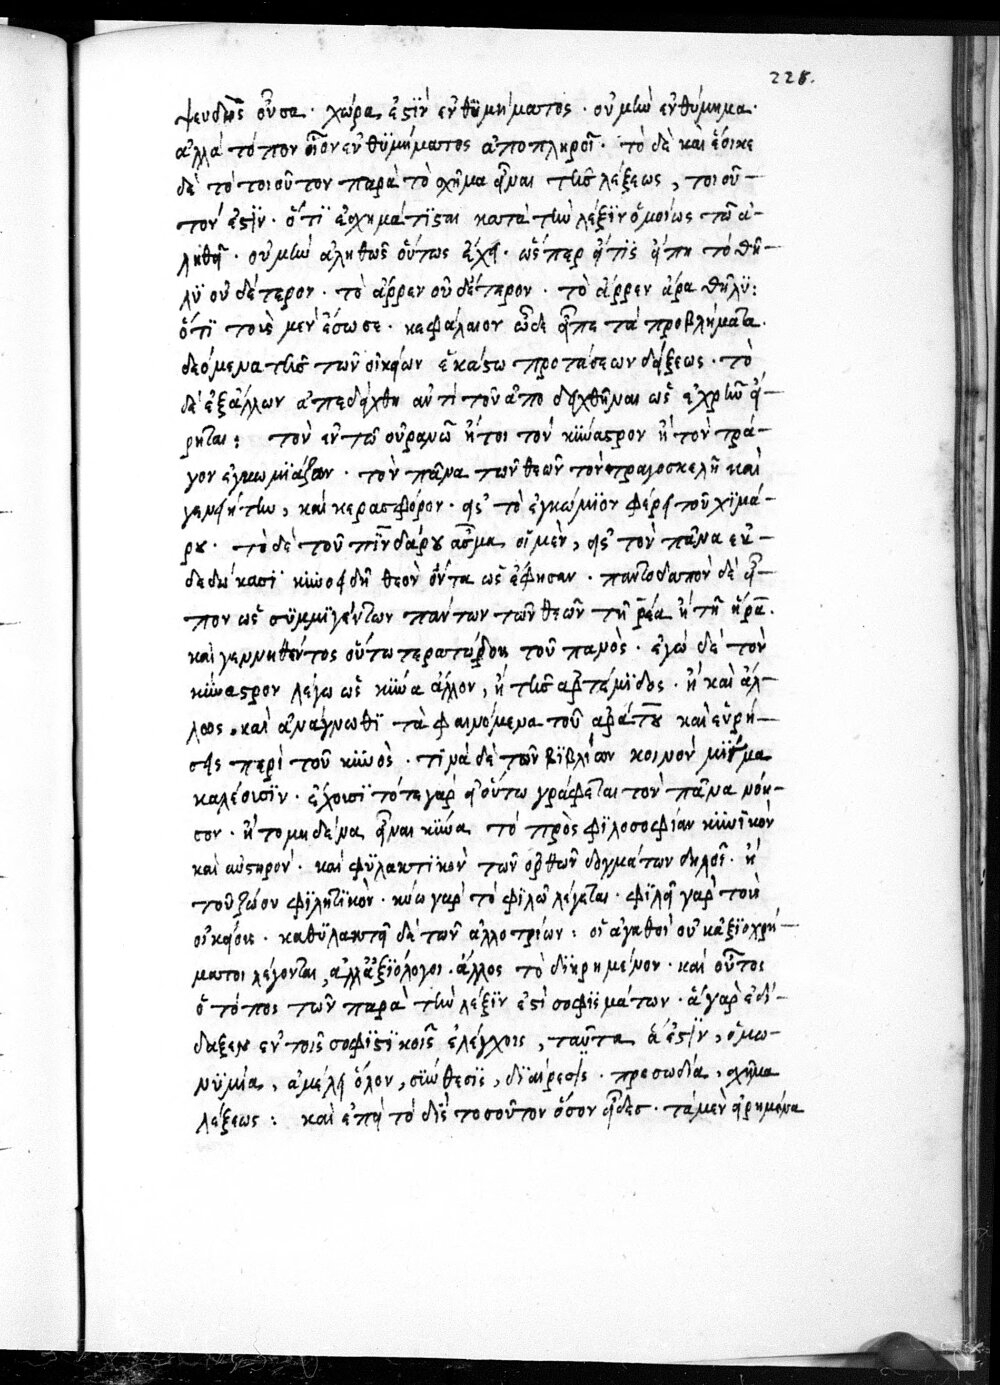 228.
ψευδὴς οὖσα · χώρα ἐστὶν ἐνθυμήματος · οὐ μὴν ἐνθύμημα ·
ἀλλὰ τόπον οἷον ἐνθυμήματος ἀποπληροῖ · τὸ δὲ καὶ ἔοικε
δὲ τὸ τοιοῦτον παρὰ τὸ σχῆμα εἶναι τῆς λέξεως, τοιοῦ-
τόν ἐστιν · ὅτι ἐσχημάτισται κατὰ τὴν λέξιν ὁμοίως τῶ ἀ-
ληθεῖ · οὐ μὴν ἀληθῶς οὕτως ἔχει · ὥσπερ εἴ τις εἴπη τὸ θῆ-
λυ οὐδέτερον · τὸ ἄρρεν οὐδέτερον · τὸ ἄρρεν ἄρα θῆλυ :
ὅτι τοὺς μὲν ἔσωσε · κεφάλαιον ὧδε εἶπε τὰ προβλήματα ·
δεόμενα τῆς τῶν οἰκείων ἑκάστω προτάσεων δείξεως · τὸ
δὲ ἐξ ἄλλων ἀπεδείχθη ἀντὶ τοῦ ἀποδειχθῆναι ὡς ἐχρῆν εἴ-
ρηται : τὸν ἐν τῶ οὐρανῶ ἤτοι τὸν κύναστρον ἢ τὸν τρά-
γον ἐγκωμιάζων · τὸν πᾶνα τῶν θεῶν τὸν τραγοσκελῆ καὶ
γενειήτην, καὶ κερασφόρον · εἰς τὸ ἐγκώμιον φέρει τοῦ χιμά-
ρου · τὸ δὲ τοῦ πινδάρου ἆσμα οἱ μὲν, εἰς τὸν πᾶνα ἐκ-
δεδώκασι κυνοειδῆ θεὸν ὄντα ὡς ἔφησαν · παντοδαπὸν δὲ εἶ-
πον ὡς συμμιγέντων πάντων τῶν θεῶν τῆ ῥέα ἢ τῆ ἥρα ·
καὶ γεννηθέντος οὕτω τερατώδους τοῦ πανὸς · ἐγὼ δὲ τὸν
κύναστρον λέγω ὡς κύνα ἄλλον, ἢ τῆς ἀρτέμιδος · ἢ καὶ ἄλ-
λως · καὶ ἀνάγνωθι τὰ φαινόμενα τοῦ ἀράτου καὶ εὑρή-
σεις περὶ τοῦ κυνὸς · τινὰ δὲ τῶν βιβλίων κοινὸν μίγμα
καλέουσιν · ἔχουσι τότε γὰρ εἰ οὕτω γράφεται τὸν πᾶνα νόη-
σον · ἢ τὸ μηδένα εἶναι κύνα τὸ πρὸς φιλοσοφίαν κυνικὸν
καὶ αὐστηρὸν · καὶ φυλακτικὸν τῶν ὀρθῶν δογμάτων δηλοῖ · ἢ
τοῦ ζώου φιλητικὸν · κύω γὰρ τὸ φιλῶ λέγεται · φιλεῖ γὰρ τοὺς
οἰκείους · καθυλακτεῖ δὲ τῶν ἀλλοτρίων : οἱ ἀγαθοὶ οὐκ ἀξιοχρή-
ματοι λέγονται, ἀλλ' ἀξιόλογοι · ἄλλος τὸ διηρημένον · καὶ οὗτος
ὁ τόπος τῶν παρὰ τὴν λέξιν ἐστὶ σοφισμάτων · ἃ γὰρ ἐδί-
δαξεν ἐν τοῖς σοφιστικοῖς ἐλέγχοις, ταῦτα ἅ ἐστιν, ὁμω-
νυμία, ἀμέλει ὅλον, σύνθεσις, διαίρεσις · προσωδία, σχῆμα
λέξεως : καὶ ἐπεὶ τὸ δὶς τοσοῦτον ὅσον εἶδες · τὰ μὲν εἰρημένα